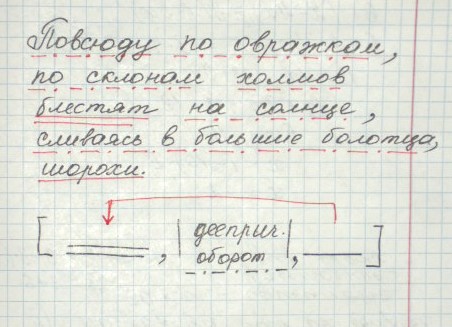 Повсюду по овражкам,
по склонам холмов
блестят на солнце,
сливаясь в большие болотца,
шорохи.
[ , | дееприч.
оборот |, ]